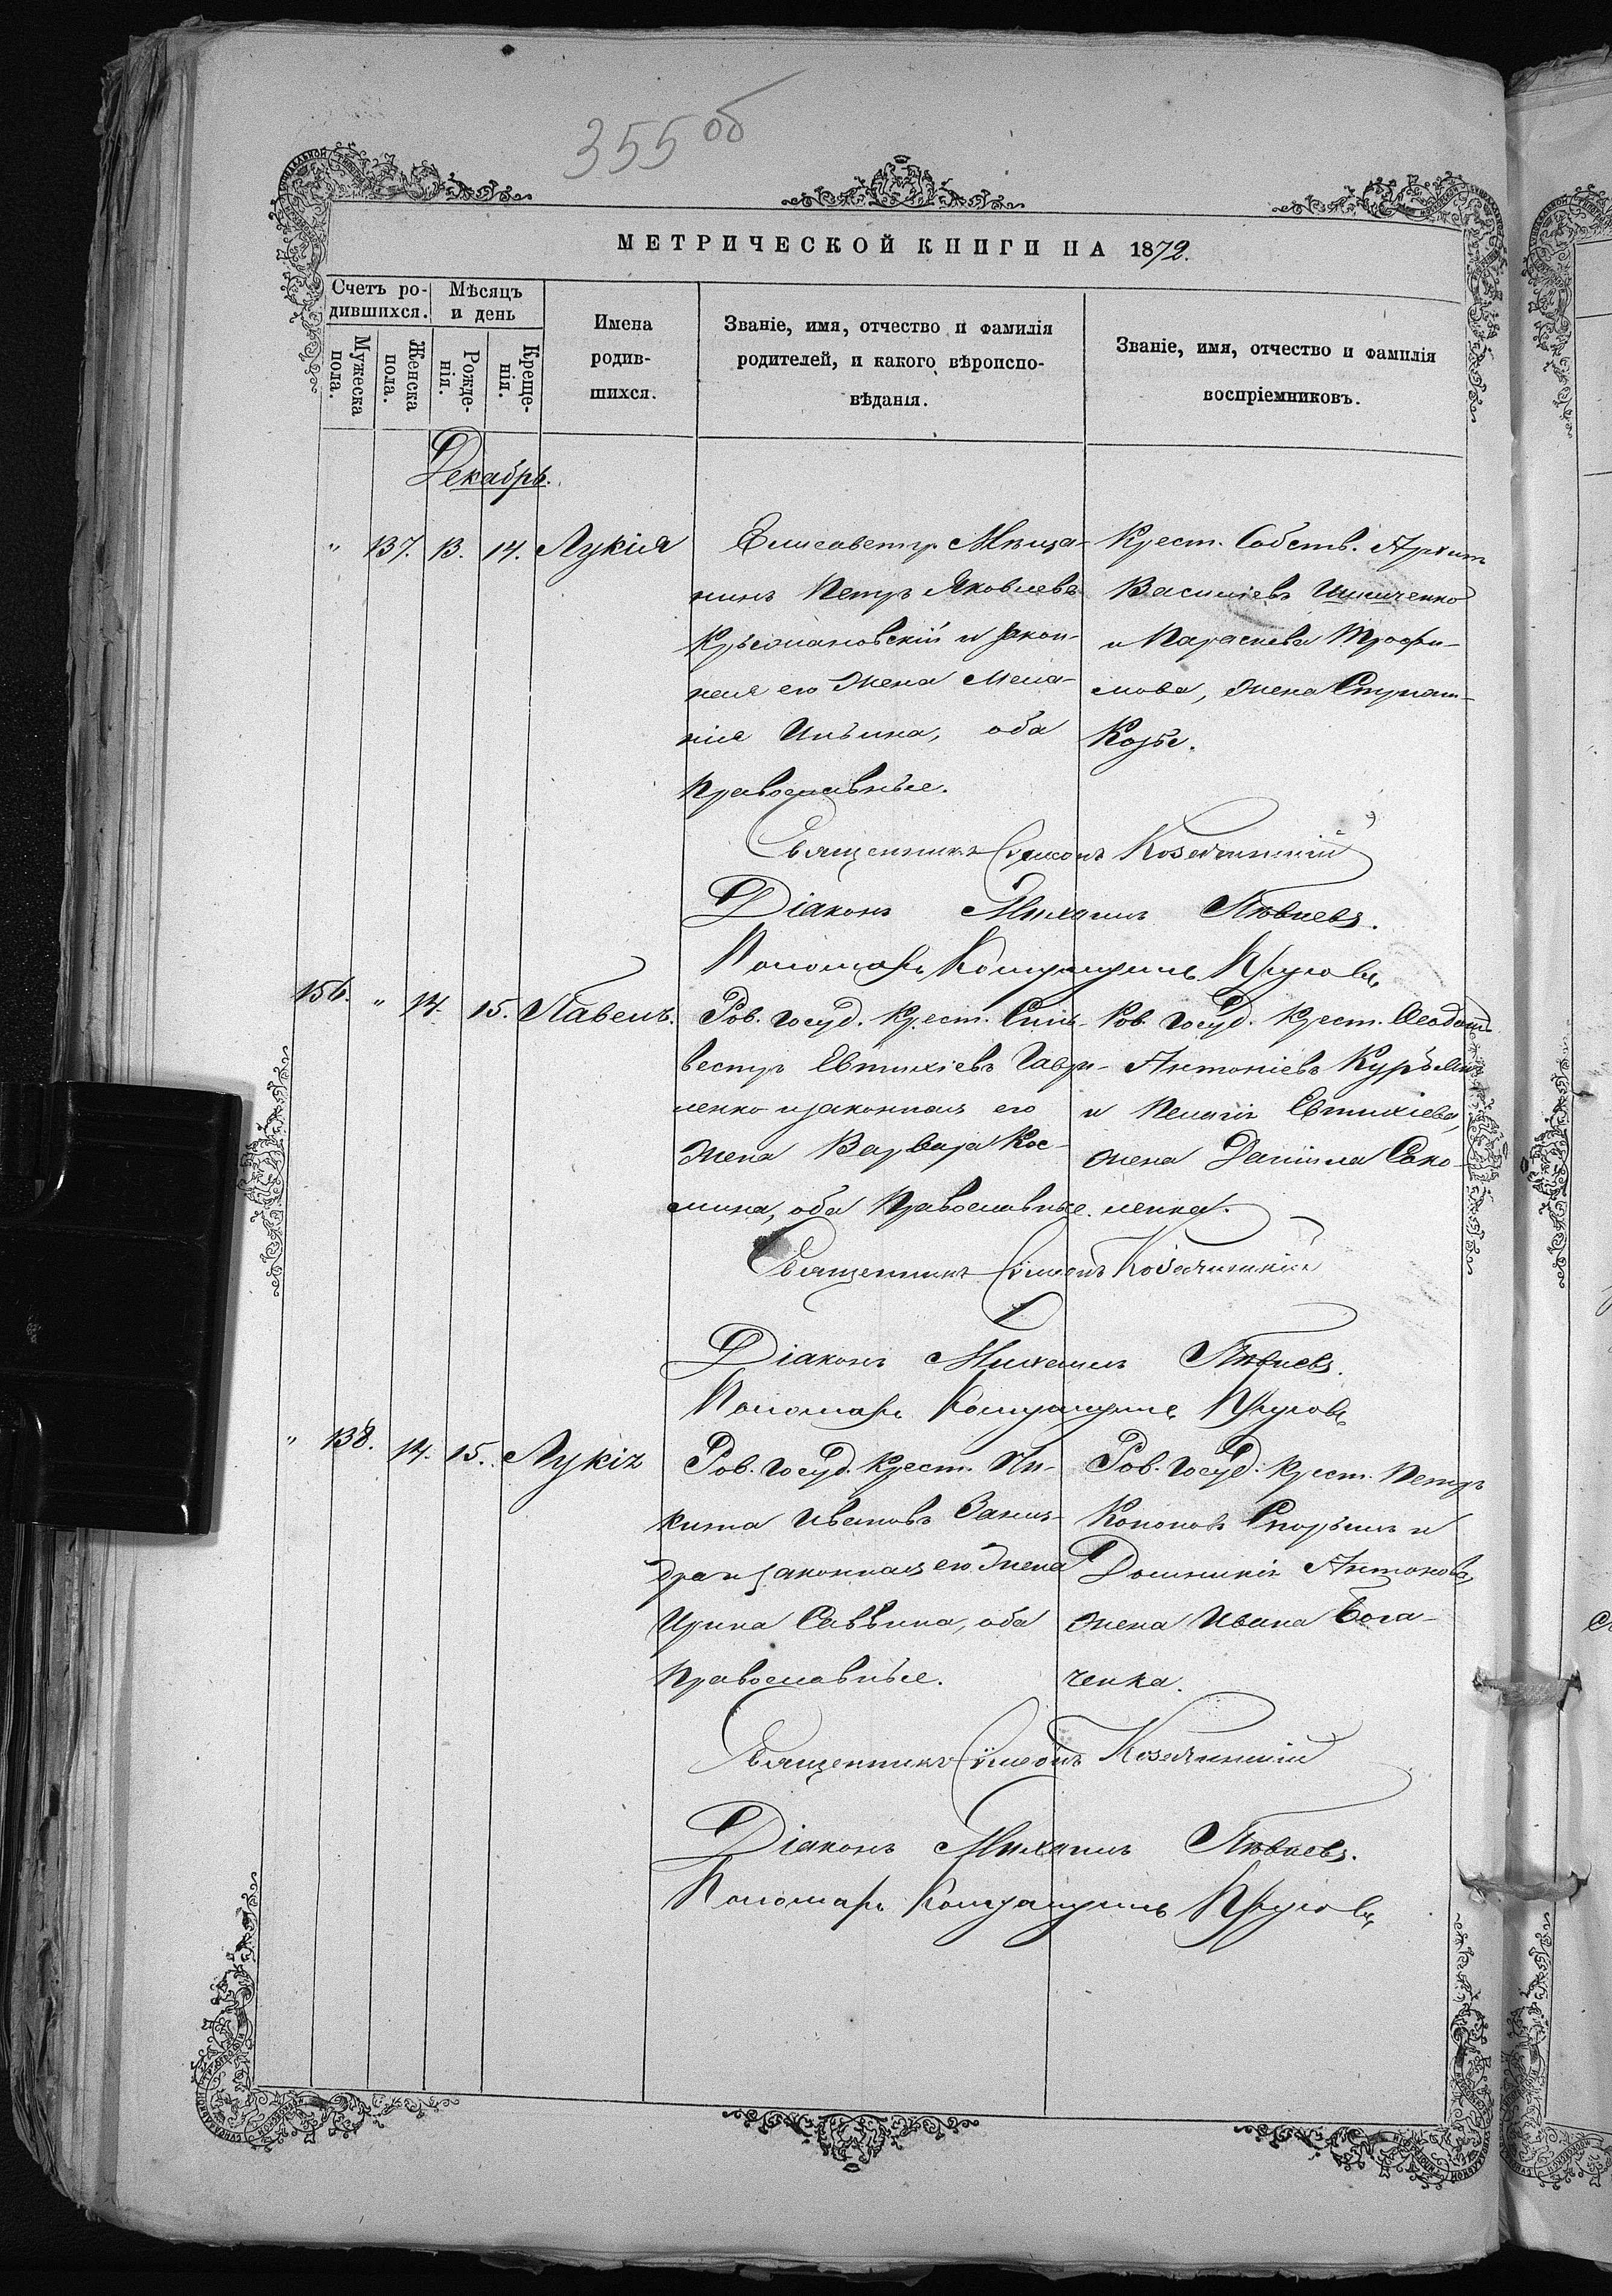 355 об
МЕТРИЧЕСКОЙ КНИГИ НА 1872.
Счетъ родившихся.
Мѣсяцъ и день
Мужеска пола.
Женска пола.
Рожденія.
Крещенія.
Имена родившихся.
Званіе, имя, отчество и фамилія родителей, и какого вѣроисповѣданія.
Званіе, имя, отчество и фамилія воспріемниковъ.
Декабрь.
" 137. 13. 14. Лукія
Елисаветгр. Мѣща-
нинъ Петръ Яковлевъ
и закон-
ная его жена Мела-
нія Ильина, оба
Православные.
Крест. Собств.
Василіевъ
и Параскева Трофи-
мова, жена
Козы.
Священникъ Симеонъ Козачинскій
Діаконъ Михаилъ
Пономарь
156. " 14. 15. Павелъ.
Гос. Госуд. Крест. Силь-
вестръ Евтихіевъ Гаври-
ленко и законная его
жена Варвара Кос-
мина, оба Православные.
Госуд. Крест. Ѳеодотъ
Антоніевъ
и Пелагія Евтихіева,
жена Даніила Сако-
ленка.
Священникъ Симеонъ Козачинскій
Діаконъ Михаилъ
Пономарь
" 138. 14. 15. Лукія
Госуд. Крест. Ни-
кита Ивановъ
и законная его жена
Ирина Саввина, оба
Православные.
Госуд. Крест. Петръ
Кононовъ и
Домникія Антонова,
жена Ивана Бога-
ченка.
Священникъ Симеонъ Козачинскій
Діаконъ Михаилъ
Пономарь